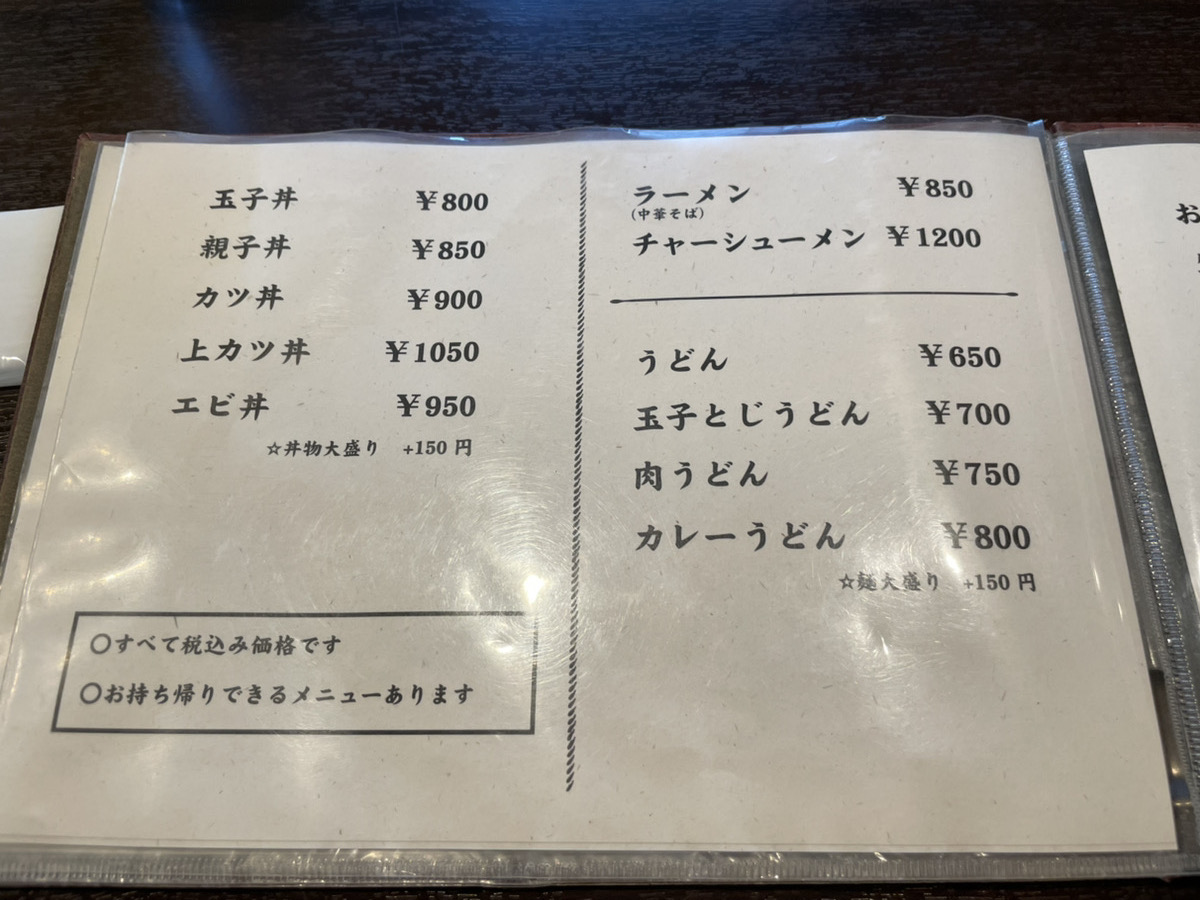 玉子丼 ￥800
親子丼 ￥850
カツ丼 ￥900
上カツ丼 ￥1050
エビ丼 ￥950
☆丼物大盛り +150 円
〇すべて税込み価格です
〇お持ち帰りできるメニューあります
ラーメン ￥850
(中華そば)
チャーシューメン ￥1200
うどん ￥650
玉子とじうどん ￥700
肉うどん ￥750
カレーうどん ￥800
☆麺大盛り +150 円
お